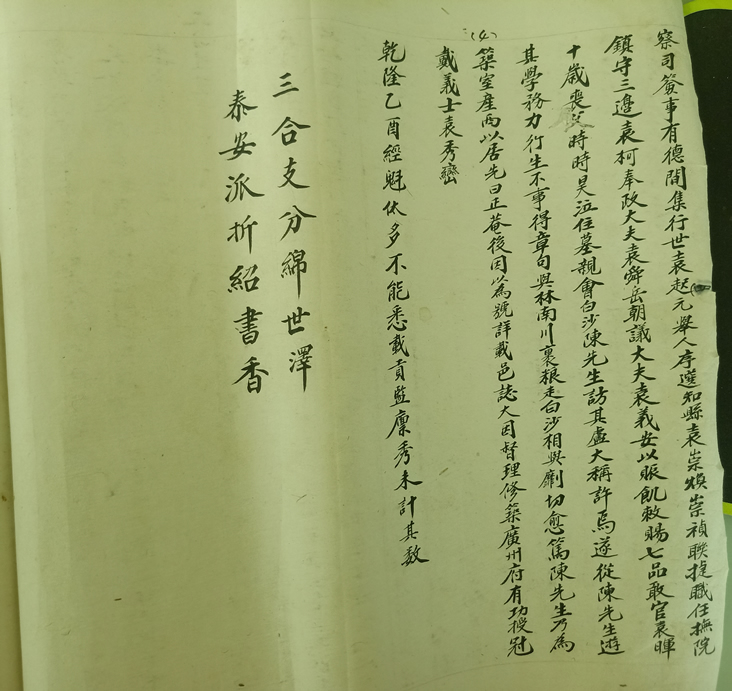 察司僉事有德閒集行世袁起元舉人序選知縣袁崇煥崇禎聯捷職任撫院
鎮守三邊袁柯奉政大夫袁舜岳朝議大夫袁義安以賑飢敕賜七品散官袁暉
十歲喪父時時哭泣住墓親會白沙陳先生訪其盧大稱許焉遂從陳先生遊
其學務力行生不事得章句與林南川裹糧走白沙相與劘切愈篤陳先生乃為
(4)
築室産而以居先曰正菴後因以為號詳載邑誌大因督理修築廣州府有功授冠
戴義士袁秀巒
乾隆乙酉經魁休多不能悉載貢監廩秀未計其数
三合支分綿世澤
泰安派折紹書香